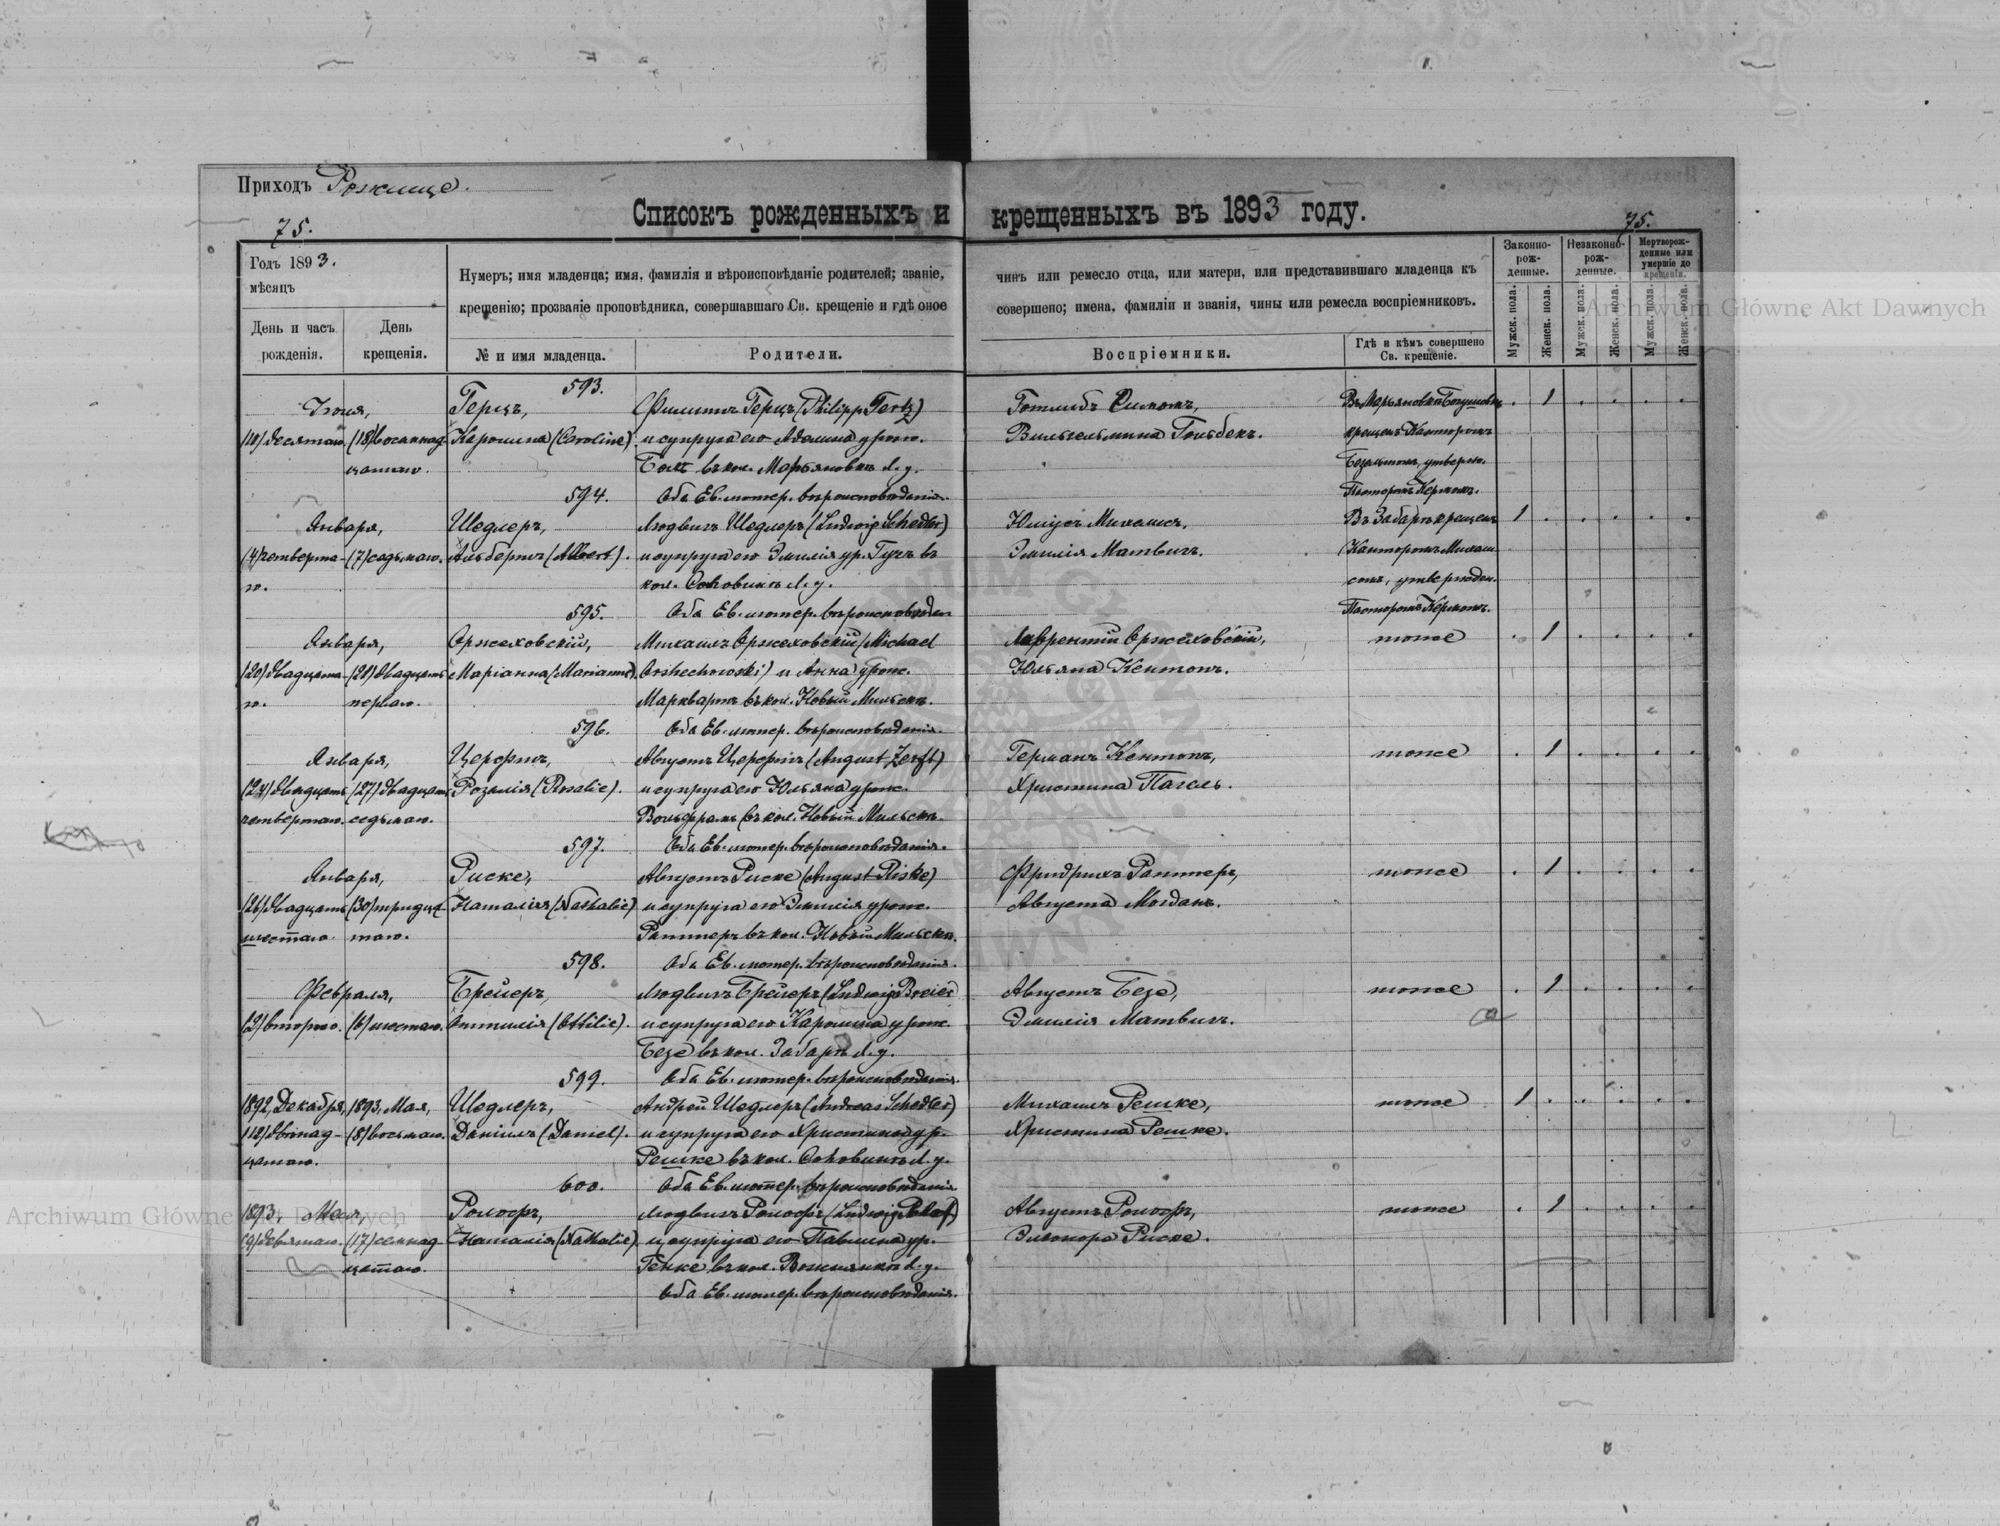 Приходъ Рожище.
Списокъ рожденныхъ и крещенныхъ въ 1893 году.
75.
75.
Годъ 1893.
мѣсяцъ
День и часъ рожденія.
День крещенія.
Нумеръ; имя младенца; имя, фамилія и вѣроисповѣданіе родителей; званіе,
чинъ или ремесло отца, или матери, или представившаго младенца къ
крещенію; прозваніе проповѣдника, совершавшаго Св. крещеніе и гдѣ оное
совершено; имена, фамиліи и званія, чины или ремесла воспріемниковъ.
№ и имя младенца.
Родители.
Воспріемники.
Гдѣ и кѣмъ совершено Св. крещеніе.
Законно-рож-денные.
Незаконно-рож-денные.
Мертворож-денные или умершіе до крещенія.
Мужск. пола.
Женск. пола.
Мужск. пола.
Женск. пола.
Мужск. пола.
Женск. пола.
593.
Герцъ, Филиппъ Герцъ (Philipp Hertz) Готлибъ 1
(10) десятаго (18) восемнад- Каролина (Caroline) и супруга его Адолина урожд. Вильгельмина Гольбекъ. крещенъ Канторомъ
цатаго. въ кол. Марьяновкѣ л. у. утвержд.
594. Оба Ев.-лютер. вѣроисповѣданія. Пасторомъ Керномъ.
Января, Шедлеръ, Людвигъ Шедлеръ (Ludwig Schedler) Юліусъ Михаисъ, Въ Забарѣ крещенъ 1
(4) четверта- (7) седьмаго. Альбертъ (Albert). и супруга его Эмилія ур. Гучъ въ Эмилія Матвигъ. Канторомъ
го. кол. л. у. утвержден.
595. Оба Ев.-лютер. вѣроисповѣден Пасторомъ Керномъ.
Января, Оржеховскій, Михаилъ Оржеховскій (Michael Лаврентій Оржеховскій, тоже 1
(20) двадцата- (21) двадцать Маріанна (Marianne). Orshechowski) и Анна урож. Юльяна Кентопъ.
го. перваго. Марквартъ въ кол. Новый Мильскъ.
596. Оба Ев.-лютер. вѣроисповѣданія.
Января, Церфтъ, Августъ Церфтъ (August Zerft) Германъ Кентопъ, тоже 1
(24) двадцать (27) двадцать Розалія (Rosalie). и супруга его Юльяна урож. Христина Пагель.
четвертаго. седьмаго. Вольфрамъ въ кол. Новый Мильскъ.
597. Оба Ев.-лютер. вѣроисповѣданія.
Января, Риске, Августъ Риске (August Riske) Фридрихъ Раттеръ, тоже 1
(26) двадцать (30) тридца- Наталія (Nathalie) и супруга его Эмилія урож. Августа Могданъ.
шестаго таго. Раттеръ въ кол. Новый Мильскъ.
598. Оба Ев.-лютер. вѣроисповѣданія.
Февраля, Брейеръ, Людвигъ Брейеръ (Ludwig Breier Августъ Безе, тоже 1
(2) втораго. (6) шестаго. Оттилія (Ottilie). и супруга его Каролина урож. Эмилія Матвигъ.
Безе въ кол. Забарѣ л. у.
599. Оба Ев.-лютер. вѣроисповѣданія.
1892, Декабря, 1893, Мая, Шедлеръ, Андрей Шедлеръ (Andreas Schedler) Михаилъ Решке, тоже 1
(12) двѣнад- (8) восьмаго. Даніилъ (Daniel). и супруга его Христина ур. Христина Решке.
цатаго. Решке въ кол. л. у.
600. Оба Ев.-лютер. вѣроисповѣданія.
1893, Мая, Ролофъ, Людвигъ Ролофъ (Ludwig Rolof) Августъ Ролофъ, тоже 1
(9) девятаго. (17) семнад- Наталія (Nathalie) и супруга его Павлина ур. Элеонора Риске.
цатаго. Генке въ кол. л. у.
Оба Ев.-лютер. вѣроисповѣданія.
Archiwum Główne Akt Dawnych
Archiwum Główne Akt Dawnych